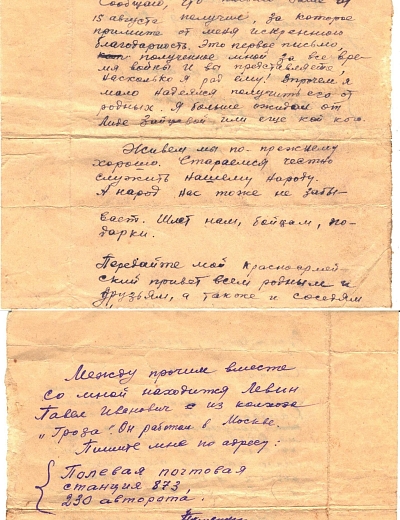 Сообщаю, что письмо Ваше от
15 августа получил, за которое
примите от меня искреннюю
благодарность. Это первое письмо,
полученное мной за все вре-
мя войны. И вы представляете,
насколько я рад ему! Впрочем, я
мало надеялся получить его от
родных. Я больше ожидал от
Лиде Зайцевой или еще кой кого.
Живем мы по-прежнему
хорошо. Стараемся честно
служить нашему народу.
А народ нас тоже не забы-
вает. Шлет нам, бойцам, по-
дарки.
Передайте мой красноармей-
ский привет всем родным и
друзьям, а также и соседям
Между прочим вместе
со мной находится Левин
Павел Иванович из колхоза
"Трода". Он работал в Москве.
Пишите мне по адресу:
Полевая почтовая
станция 873,
230 авторота.